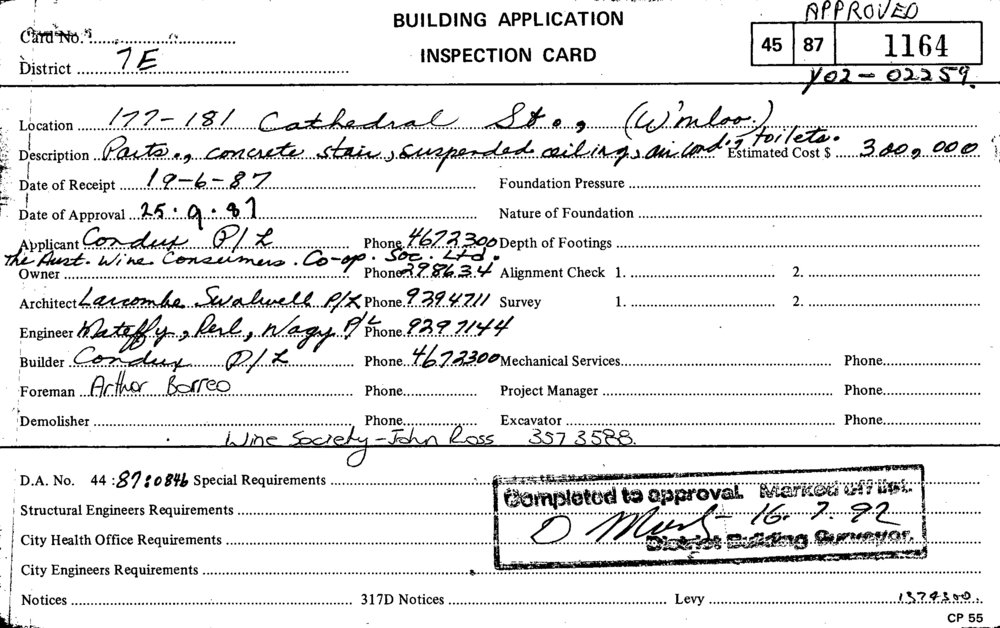 BUILDING APPLICATION
APPROVED
Card No.
INSPECTION CARD
45 87 1164
District 7E
Y02-02259.
Location 177-181 Cathedral St., (W'mloo.)
Description Parts., concrete stair, suspended ceiling, air cond'g toilets. Estimated Cost $ 300,000
Date of Receipt 19-6-87 Foundation Pressure
Date of Approval 25.9.87 Nature of Foundation
Applicant Condux P/L Phone 4672300 Depth of Footings
The Aust. Wine Consumers. Co-op. Soc. Ltd.
Owner Phone 298634 Alignment Check 1. 2.
Architect Larcombe Swalwell P/L Phone 9294711 Survey 1. 2.
Engineer Mateffy, Perl, Nagy P/L Phone 9297144
Builder Condux P/L Phone 4672300 Mechanical Services Phone
Foreman Arthor Borreo Phone Project Manager Phone
Demolisher Phone Excavator Phone
Wine Society-John Ross 357 3588.
D.A. No. 44:87:0846 Special Requirements
Completed to approval. Marked off list.
Structural Engineers Requirements
16.7.92
City Health Office Requirements
District Building Surveyor.
City Engineers Requirements
Notices 317D Notices Levy
CP 55